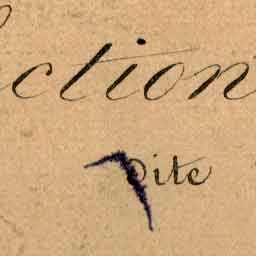 ction
dite